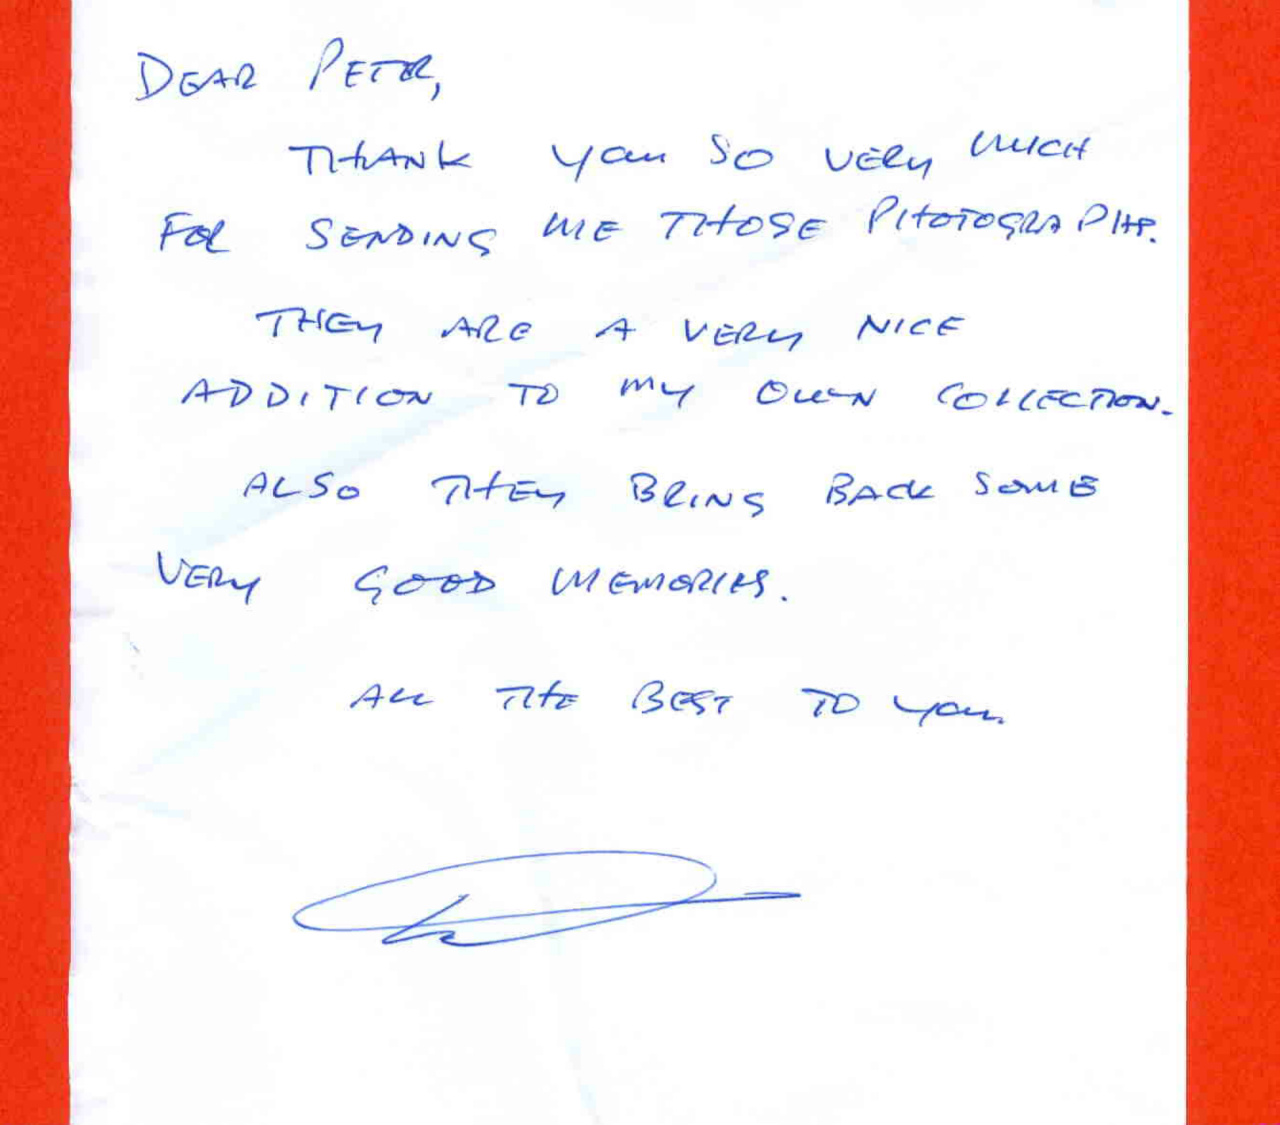 DEAR PETER,
THANK you SO VERY MUCH
FOR SENDING ME THOSE PHOTOGRAPHS.
THEY ARE A VERY NICE
ADDITION TO MY OWN COLLECTION.
ALSO THEY BRING BACK SOME
VERY GOOD MEMORIES.
ALL THE BEST TO you.